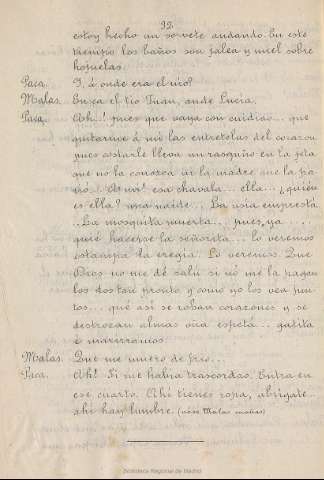 92.
estoy hecho un sorvete andando. En este
tiempo los baños son jalea y miel sobre
hojuelas.
Paca. Y, á onde era el uso?
Malas. En ca el tio Juan, ande Lucía.
Paca. Ah..! pues que vaya con cuidiao... que
quitarme á mi las entretelas del corazon
pues costarle lleva un rasguño en la jeta
que no la conozca ni la madre que la pa
rió..! A mi! esa chavala... ella... ¿quién
es ella? una naide... La usia emprestá
...La mosquita muerta... pues, ya ....
quié hacerse la señorita... lo veremos
estampa la eregia. Lo veremos. Que
Dios no me dé salú si no me la pagan
los dos tan pronto y como no los vea jun
tos... qué asi se roban corazones y se
destrozan almas una espeta... gatita
é mazurronios
Malas. Que me muero de frio...
Paca. Ah! Si me habia trascordao. Entra en
ese cuarto. Ahi tienes ropa, abrigate..
ahi hay lumbre. (vase Malas mañas)
Biblioteca Regional de Madrid